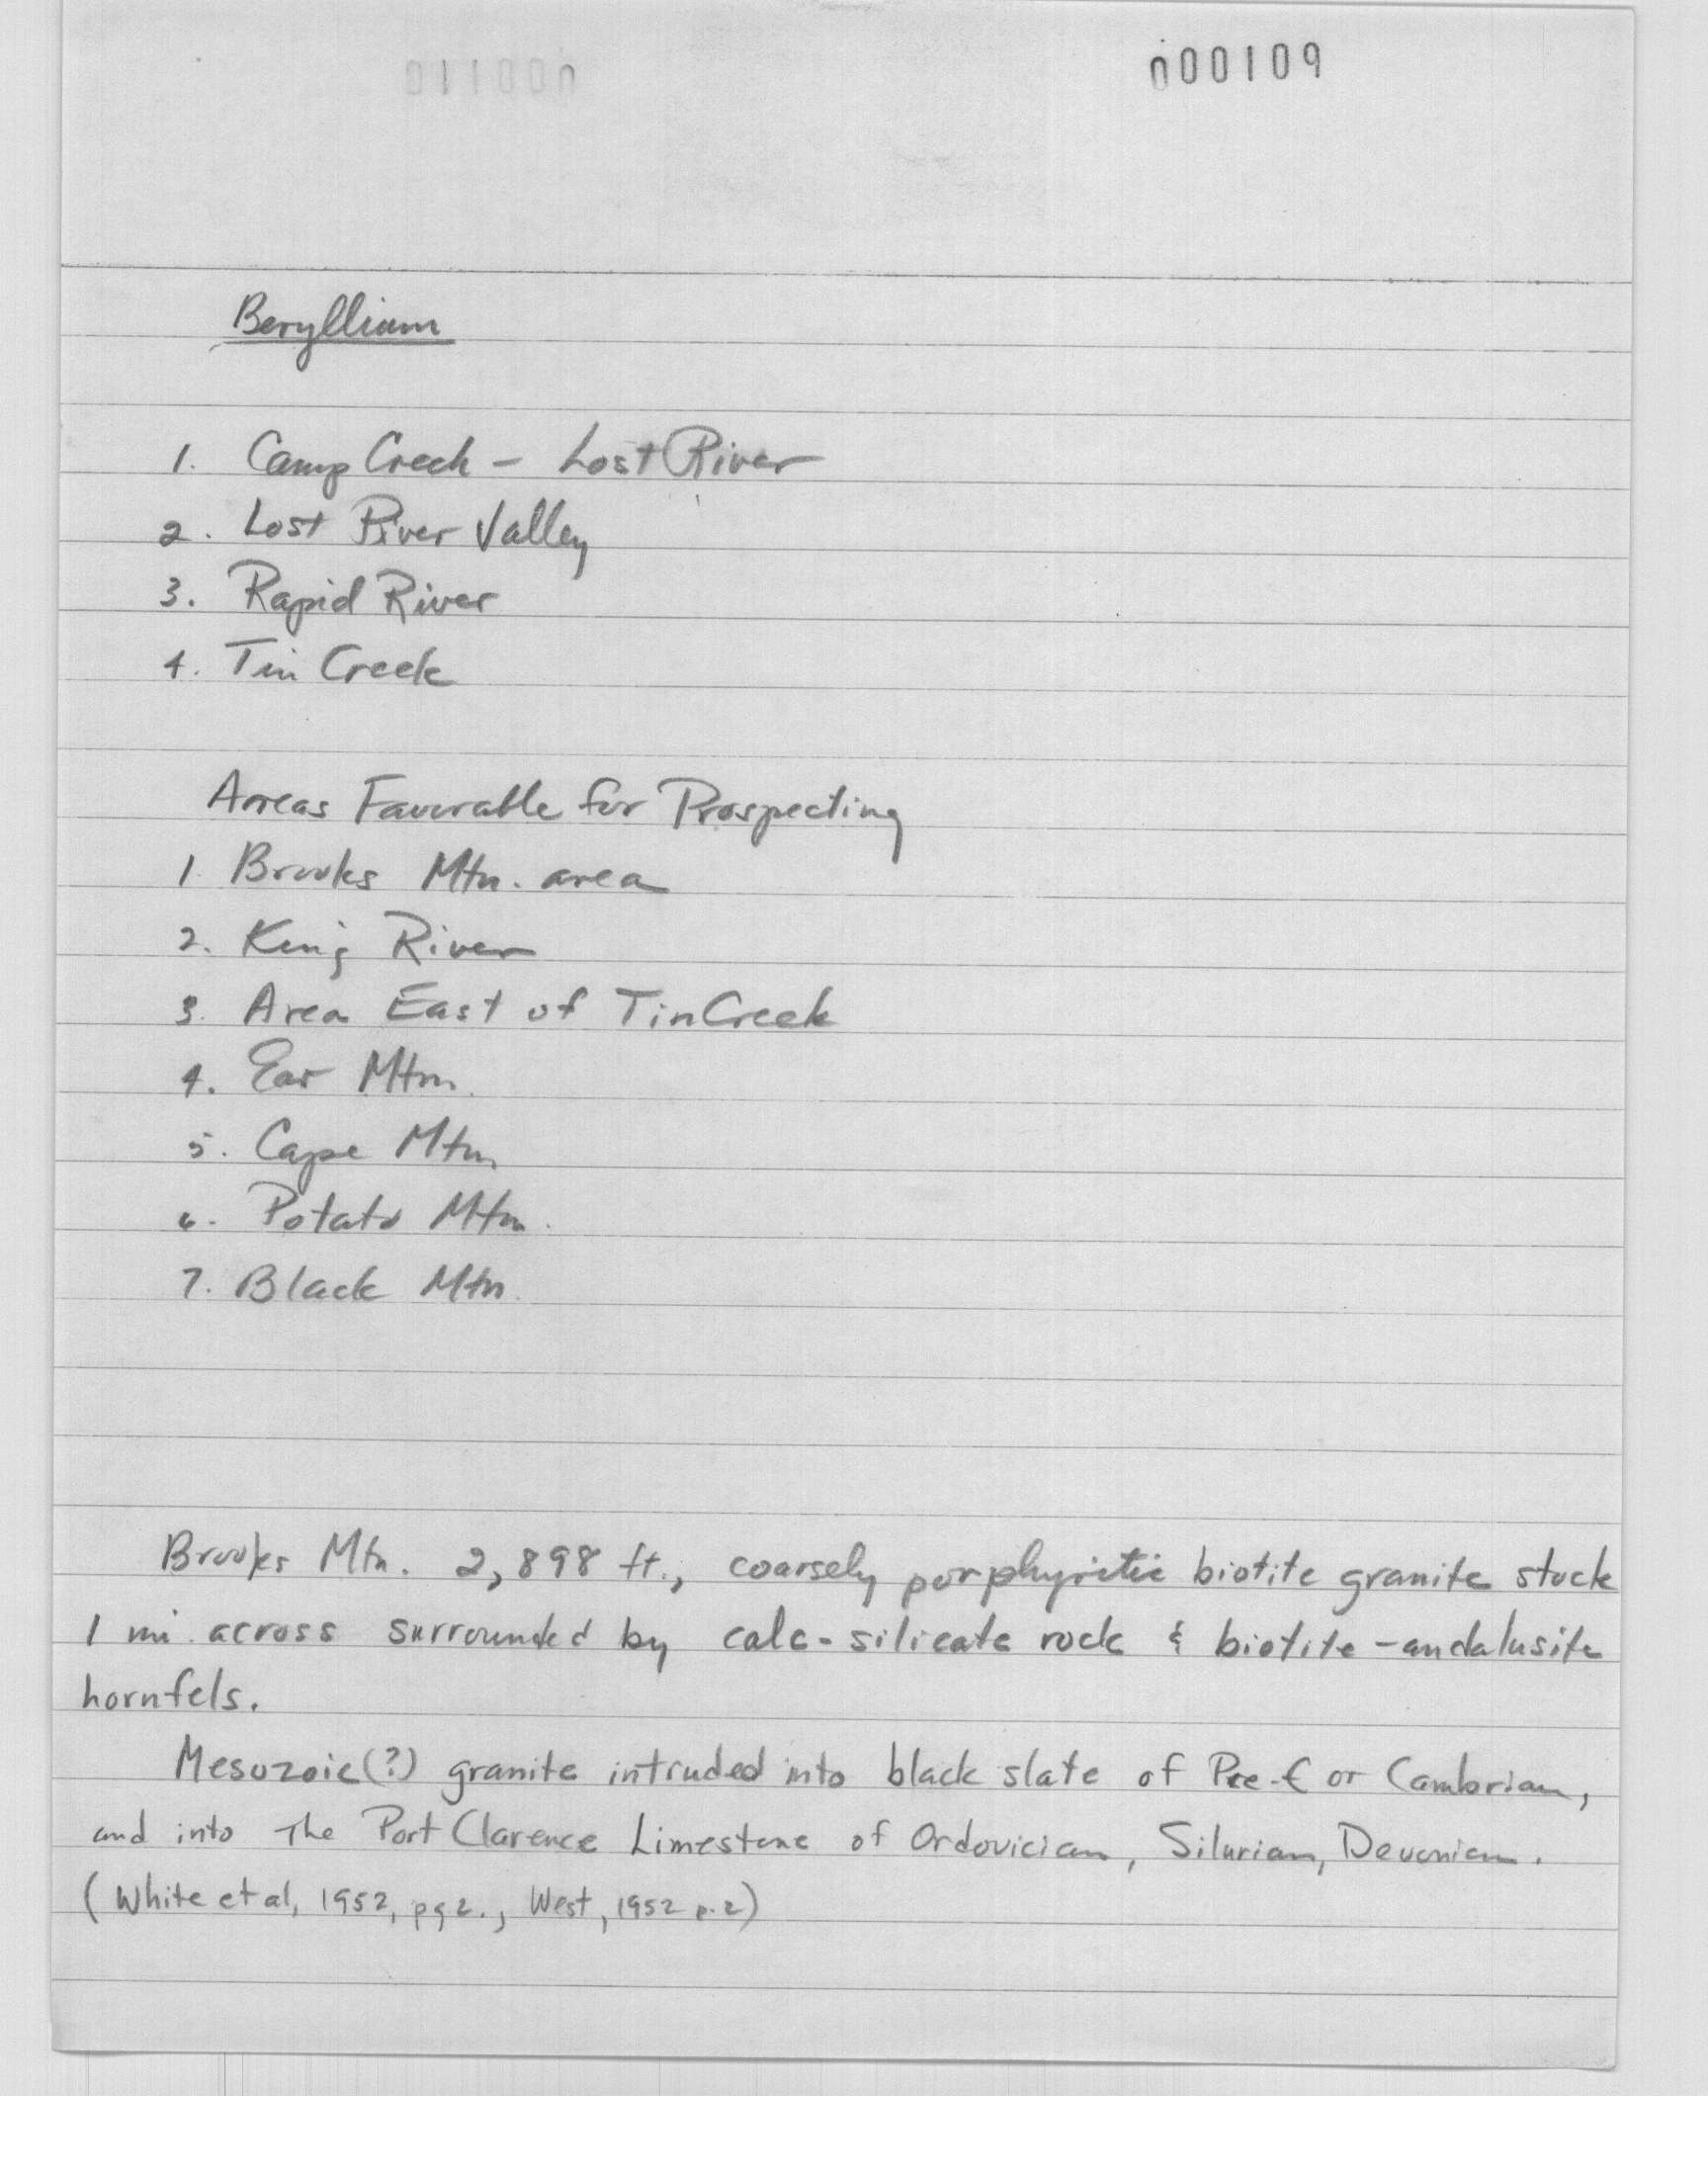 000109
Beryllium
1. Camp Creek - Lost River
2. Lost River Valley
3. Rapid River
4. Tin Creek
Areas Favorable for Prospecting
1. Brooks Mtn. area
2. King River
3. Area East of Tin Creek
4. Ear Mtn.
5. Cape Mtn.
6. Potato Mtn.
7. Black Mtn.
Brooks Mtn. 2,898 ft., coarsely porphyritic biotite granite stock
1 mi. across surrounded by calc-silicate rock & biotite-andalusite
hornfels.
Mesozoic(?) granite intruded into black slate of Pre-Є or Cambrian,
and into The Port Clarence Limestone of Ordovician, Silurian, Devonian.
(White et al, 1952, pg 2., West, 1952 p.2)